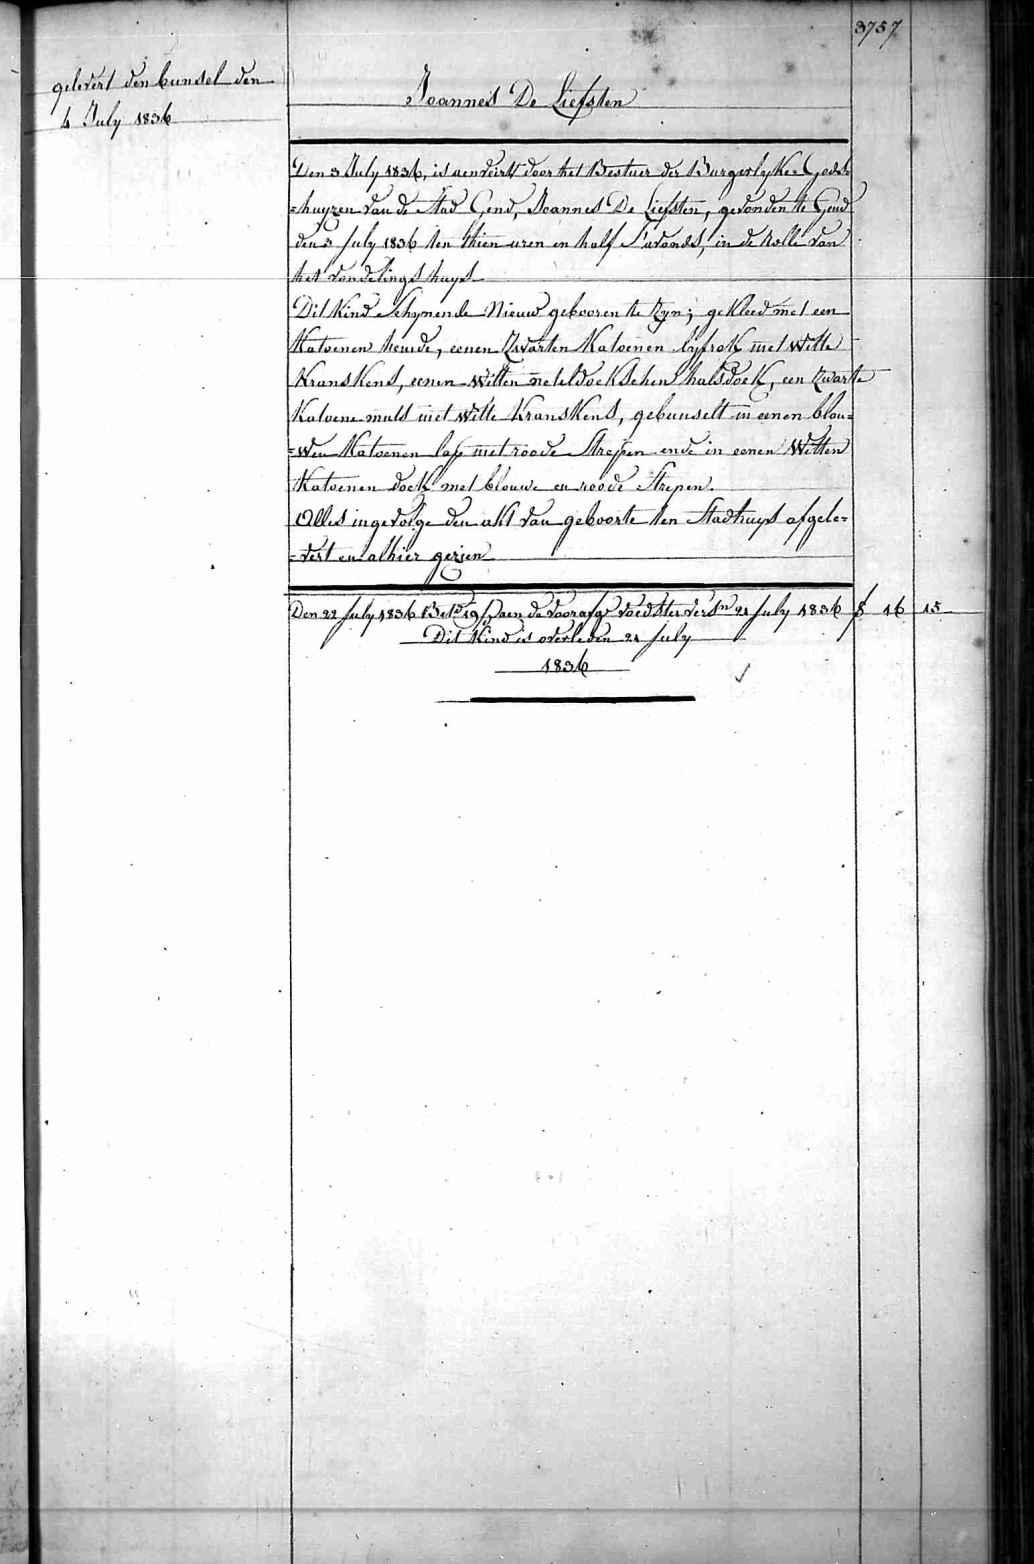 3757
gelevert den bunsel den
4 July 1836
Joannes De Liefsten
Den 3 July 1836, is aenveirt door het Bestuer der Burgerlyke Gods=
=huyzen van de Stad Gend, Joannes De Liefsten, gevonden te Gend
den 3 July 1836 ten thien uren en half S'avonds, in de Rolle van
het vondelings huys
Dit Kind schynende Nieuw gebooren te Zyn; gekleed met een
Katoenen hemde, eenen Zwarten Katoenen lyfrok met Witte
Kranskens, eenen Witten neteldoekschen halsdoek, een Zwarte
Katoene muts met Witte Kranskens, gebunselt in eenen blau=
=wen Katoenen lap met roode Strepen ende in eenen Witten
Katoenen doek met blouwe en roode Strepen.
Alles ingevolge den akt van geboorte ten Stadhuys afgele=
=vert en alhier gezien
Den 22 July 1836 aen de voorafge voedster 21 July 1836 8 16 15
Dit Kind is overleden 21 July
1836